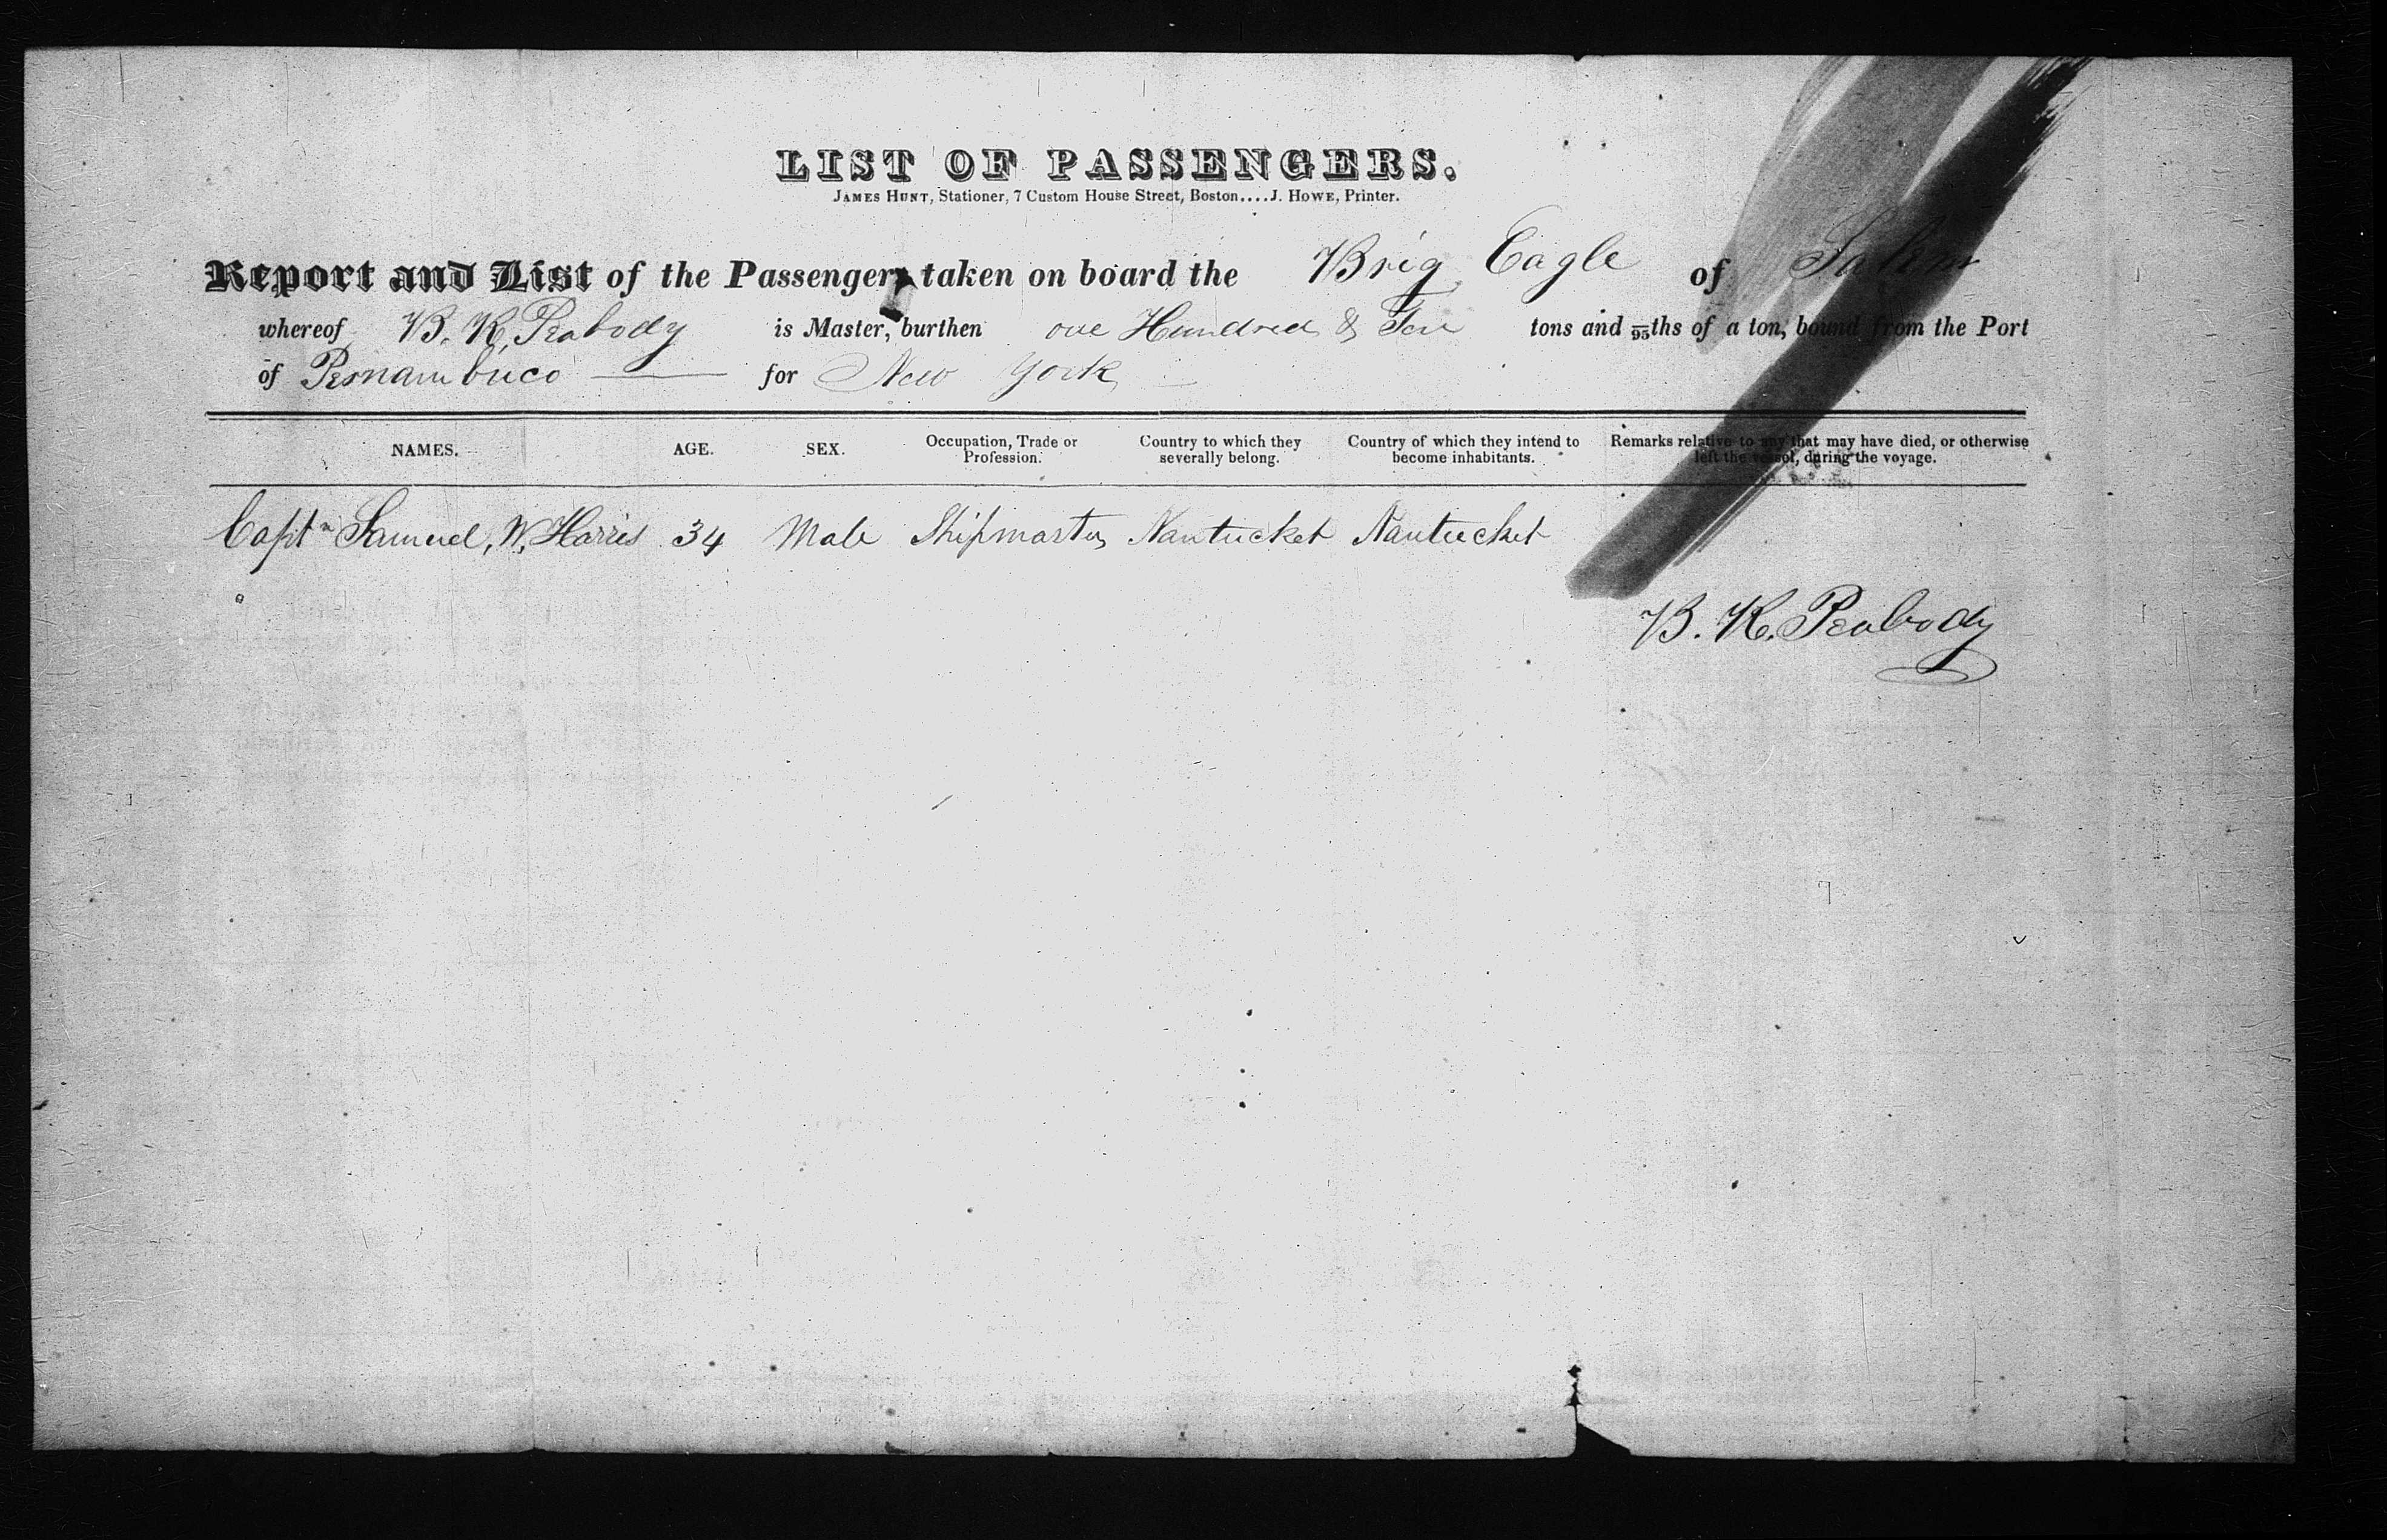 LIST OF PASSENGERS.
JAMES HUNT, Stationer, 7 Custom House Street, Boston....J. HOWE, Printer.
Report and List of the Passengers taken on board the Brig Eagle of Salem
whereof B. K. Peabody is Master, burthen one Hundred & Ten tons and 95ths of a ton, bound from the Port
of Pernambuco for New York
NAMES. AGE. SEX. Occupation, Trade or Profession. Country to which they severally belong. Country of which they intend to become inhabitants. Remarks relative to any that may have died, or otherwise left the vessel, during the voyage.
Captn Samuel, W, Harris 34 Male Shipmaster Nantucket Nantucket
B. K. Peabody